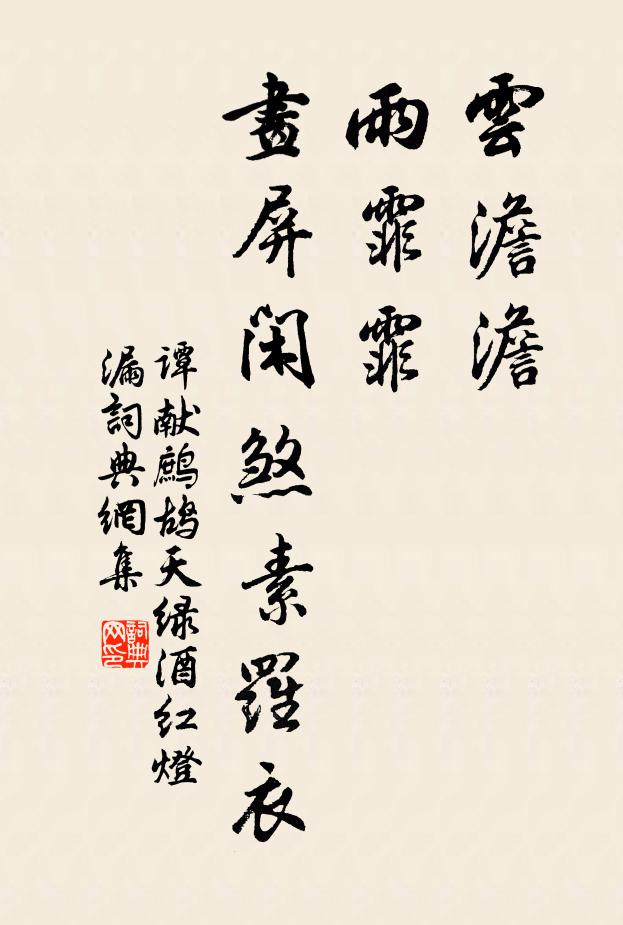 雲澹澹
雨霏霏
畫屏閑煞素羅衣
谭献鷓鸪天绿酒红燈
漏詞典網集
詞典网印